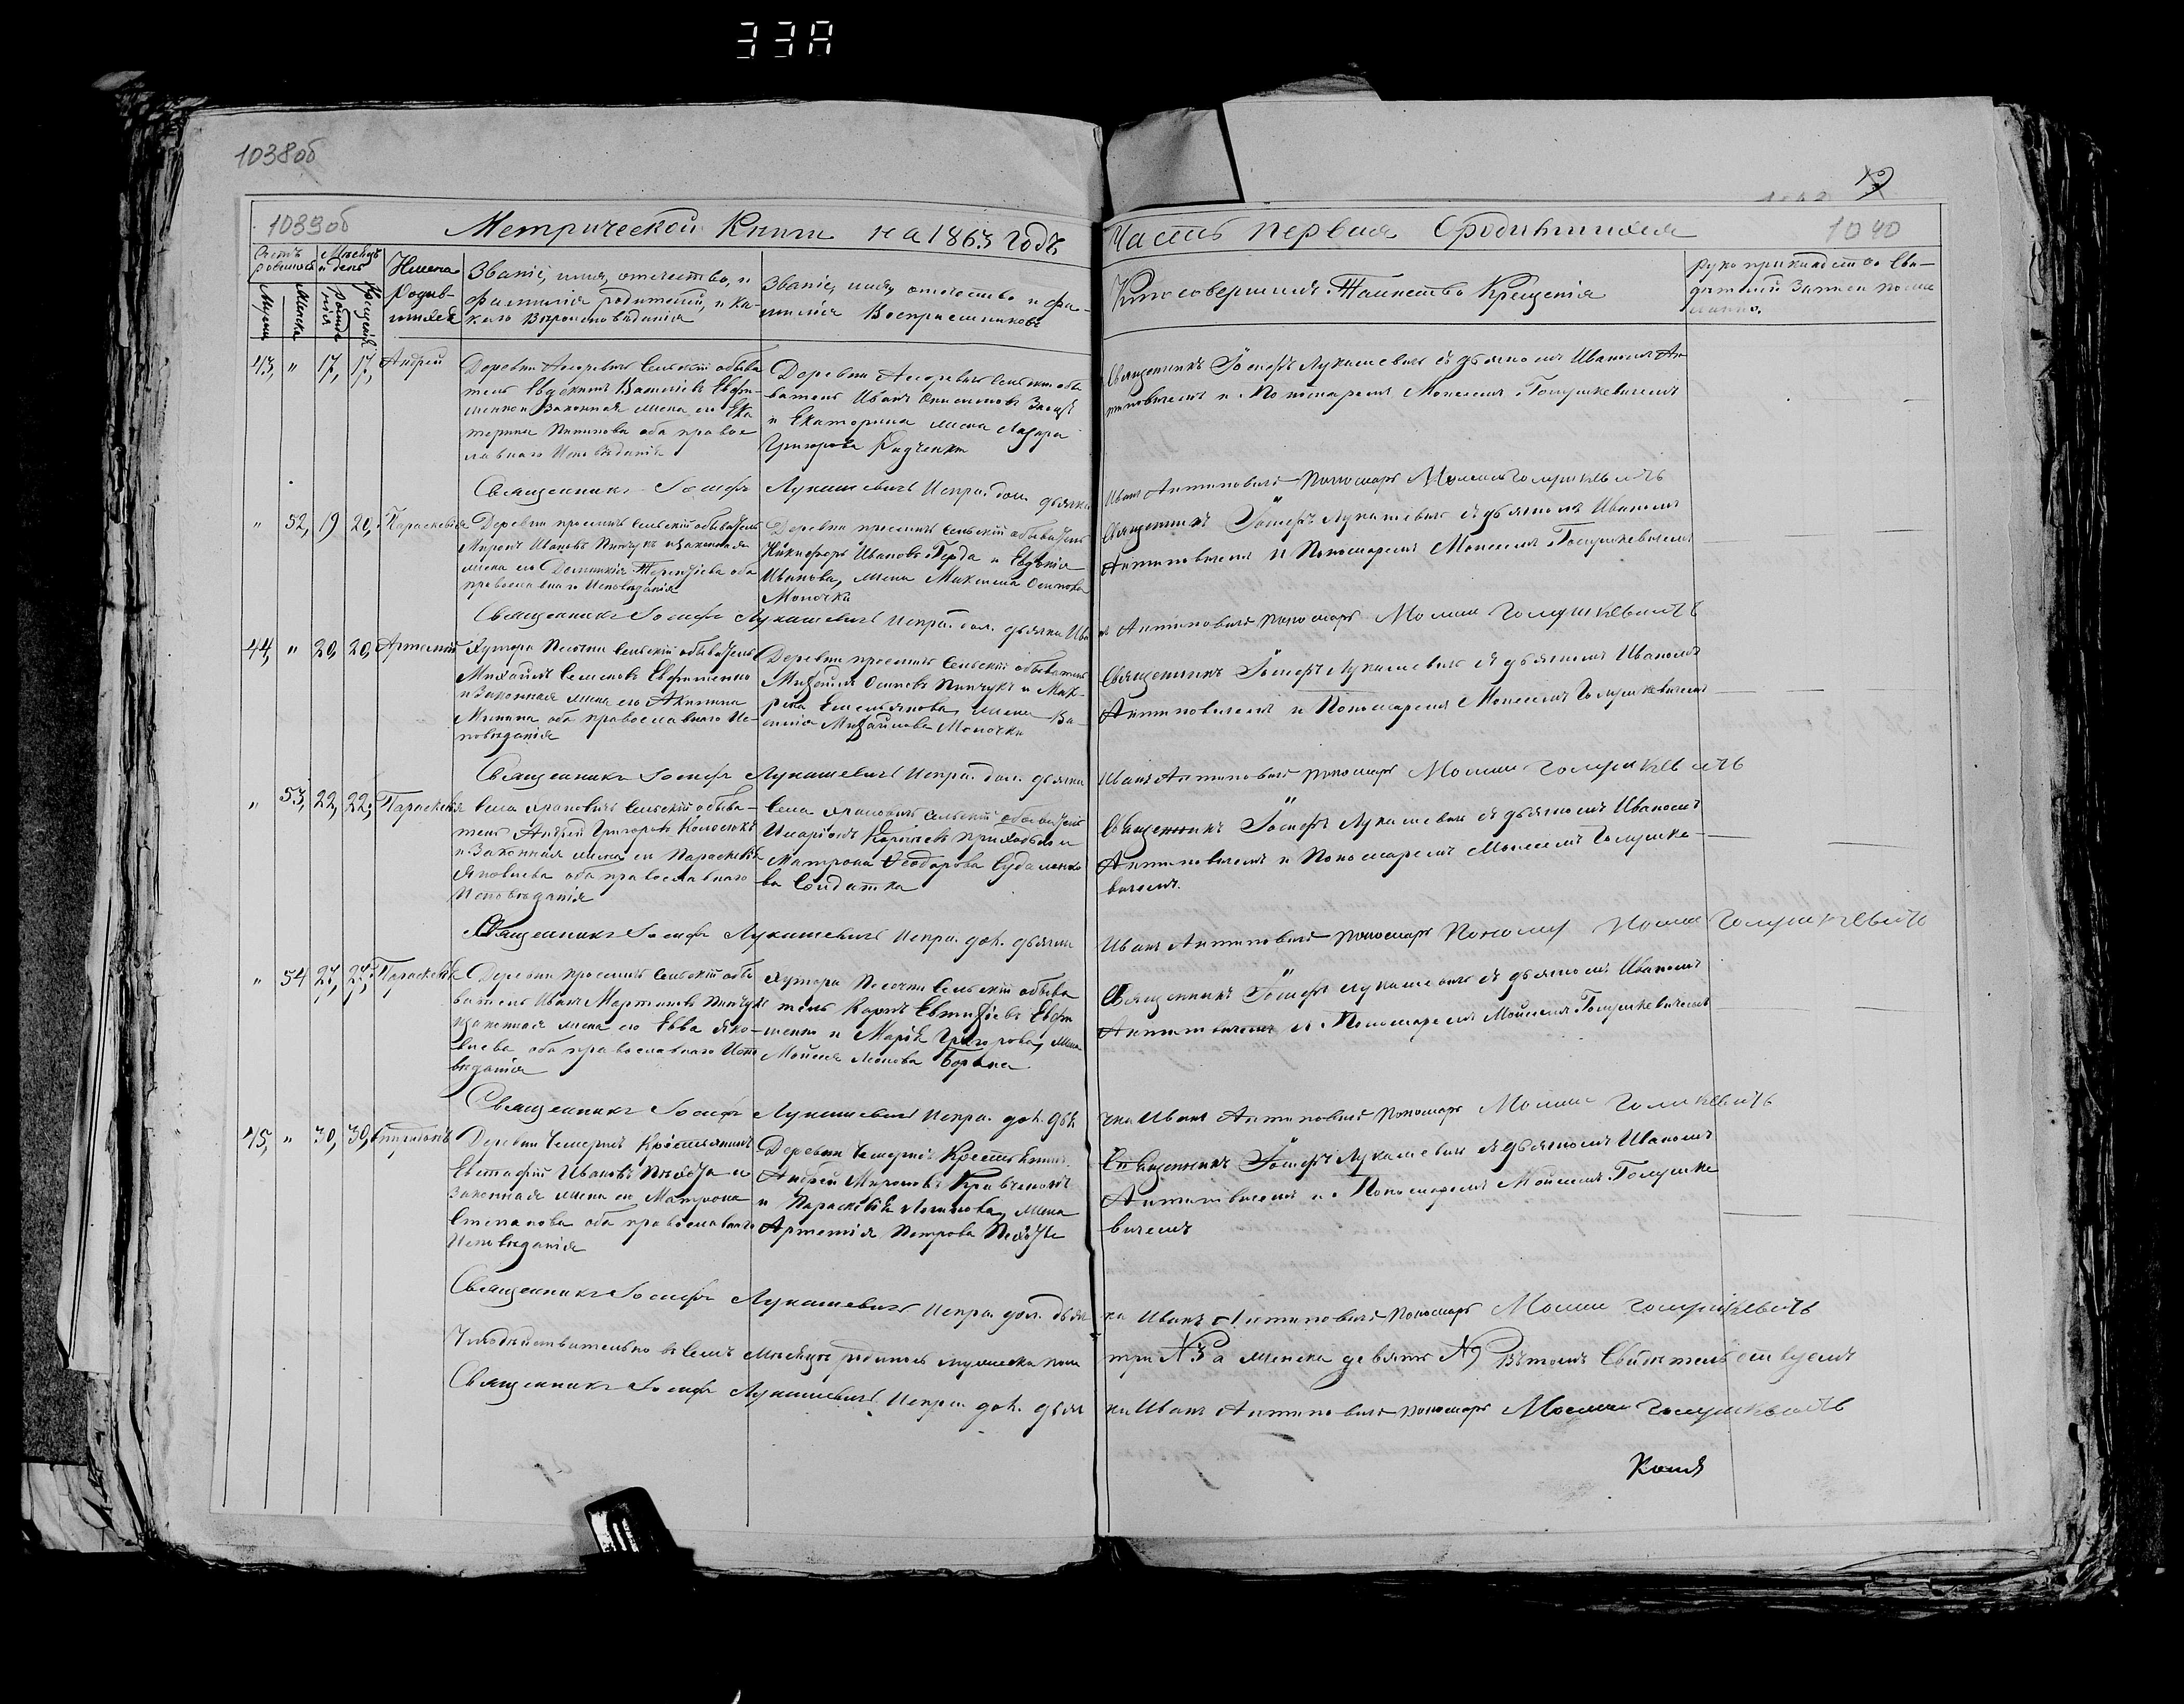 33A
1038об
1039об
Метрической Книги на 1863 годъ
Часть первая о родившихся
1040
Счетъ родившихся
Мужеска
Женска
Мѣсяцъ и день
рожде
нія
Крещенія
Имена
Родив-
шихся
Званіе, имя, отчество, и
фамилія родителей, и ка-
кого Вѣроисповѣданія
Званіе, имя, отчество и фа-
милія Воспріемниковъ
Кто совершилъ Таинство Крещенія
Рукоприкладство Сви-
дѣтелей Записи по же
ланію.
43, " 17, 17, Андрей
Деревни сельскій обыва
тель Евдокимъ Ефи-
менко и Законная жена его Ека
терина оба право
славнаго Исповѣданія
Деревни сельскій обы
ватель Иванъ Заецъ
и Екатерина жена Лазаря
Григорова
Священникъ Іосифъ Лукашевичъ съ дьячкомъ Иваномъ Ан
типовичемъ и Пономаремъ Моисеемъ Голушкевичемъ
Священникъ Іосифъ Лукашевичъ Испра. дол. дьячка
Иванъ Антиповичъ пономарь Моисей Голушкевичъ
" 52, 19 20, Параскевія
Деревни сельскій обыватель
Миронъ Ивановъ Пинчукъ и законная
жена его Домникія Терентіева оба
православнаго Исповѣданія
Деревни сельскій обыватель
Никифоръ Ивановъ Герда и Евдокія
Иванова, жена Максима Осипова
Молочки
Священникъ Іосифъ Лукашевичъ съ дьячкомъ Иваномъ
Антиповичемъ и Пономаремъ Моисеемъ Голушкевичемъ
Священникъ Іосифъ Лукашевичъ Испра. дол. дьячка Ива
нъ Антиповичъ пономарь Моисей Голушкевичъ
44, " 20, 20, Артемій
Хутора Песочни сельскій обыватель
Михаилъ Семеновъ Ефименко
и Законная жена его Акилина
Минина оба православнаго Ис-
повѣданія
Деревни сельскій обыватель
Михаилъ Осиповъ Пинчукъ и Мак-
рина Емельянова, жена Ва-
силія Михайлова Молочки
Священникъ Іосифъ Лукашевичъ съ дьячкомъ Иваномъ
Антиповичемъ и Пономаремъ Моисеемъ Голушкевичемъ
Священникъ Іосифъ Лукашевичъ Испра. дол. дьячка
Иванъ Антиповичъ пономарь Моисей Голушкевичъ
" 53, 22, 22, Параскевія
Села Храповичъ сельскій обыва-
тель Андрей Григоровъ
и Законная жена его Параскевія
Яковлева оба православнаго
Исповѣданія
Села Храповичъ сельскій обыватель
Иларіонъ Корніевъ Приходько и
Матрона Ѳеодорова Судаленко
ва Солдатка
Священникъ Іосифъ Лукашевичъ съ дьячкомъ Иваномъ
Антиповичемъ и Пономаремъ Моисеемъ Голушке-
вичемъ.
Священникъ Іосифъ Лукашевичъ Испра. дол. дьячка
Иванъ Антиповичъ пономарь Моисей Голушкевичъ
" 54 27, 27, Параскевія
Деревни сельскій обы
ватель Иванъ Мартиновъ Пинчукъ
и законная жена его Евва Яко-
влева оба православнаго Испо
вѣданія
Хутора Песочни сельскій обыва
тель Карпъ Евтихіевъ Ефи
менко и Марія Григорова, жена
Моисея Леонова Борана
Священникъ Іосифъ Лукашевичъ съ дьячкомъ Иваномъ
Антиповичемъ и Пономаремъ Моисеемъ Голушкевичемъ
Священникъ Іосифъ Лукашевичъ Испра. дол. дья
чка Иванъ Антиповичъ пономарь Моисей
45, " 30, 30, Спиридонъ
Деревни Чемеричъ Крестьянинъ
Евстафій Ивановъ Пѣхота и
Законная жена его Матрона
Степанова оба православнаго
Исповѣданія
Деревни Чемеричъ Крестьянинъ
Андрей Мироновъ Кравченокъ
и Параскевія Логинова, жена
Артемія Петрова Пѣхоты
Священникъ Іосифъ Лукашевичъ съ дьячкомъ Иваномъ
Антиповичемъ и Пономаремъ Моисеемъ Голушке
вичемъ
Священникъ Іосифъ Лукашевичъ Испра. дол. дьяч
ка Иванъ Антиповичъ пономарь Моисей Голушкевичъ
Что дѣйствительно въ семъ мѣсяцѣ родилось мужеска пола
три №3 а женска девять №9 въ томъ Свидѣтельствуемъ
Священникъ Іосифъ Лукашевичъ Испра. дол. дьяч
ка Иванъ Антиповичъ пономарь Моисей Голушкевичъ